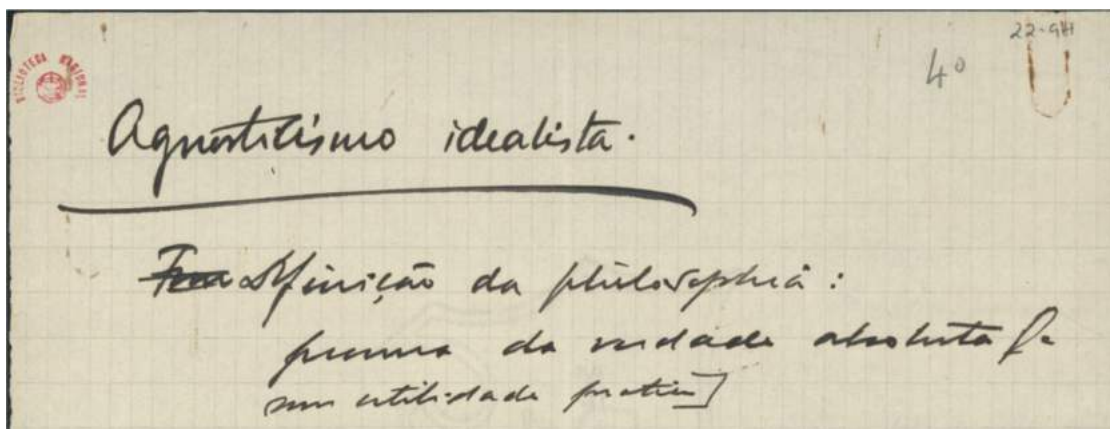 BIBLIOTECA NACIONAL
22-94
4º
Agnosticismo idealista.
Definição da philosophia:
procura da verdade absoluta
sem utilidade pratica]